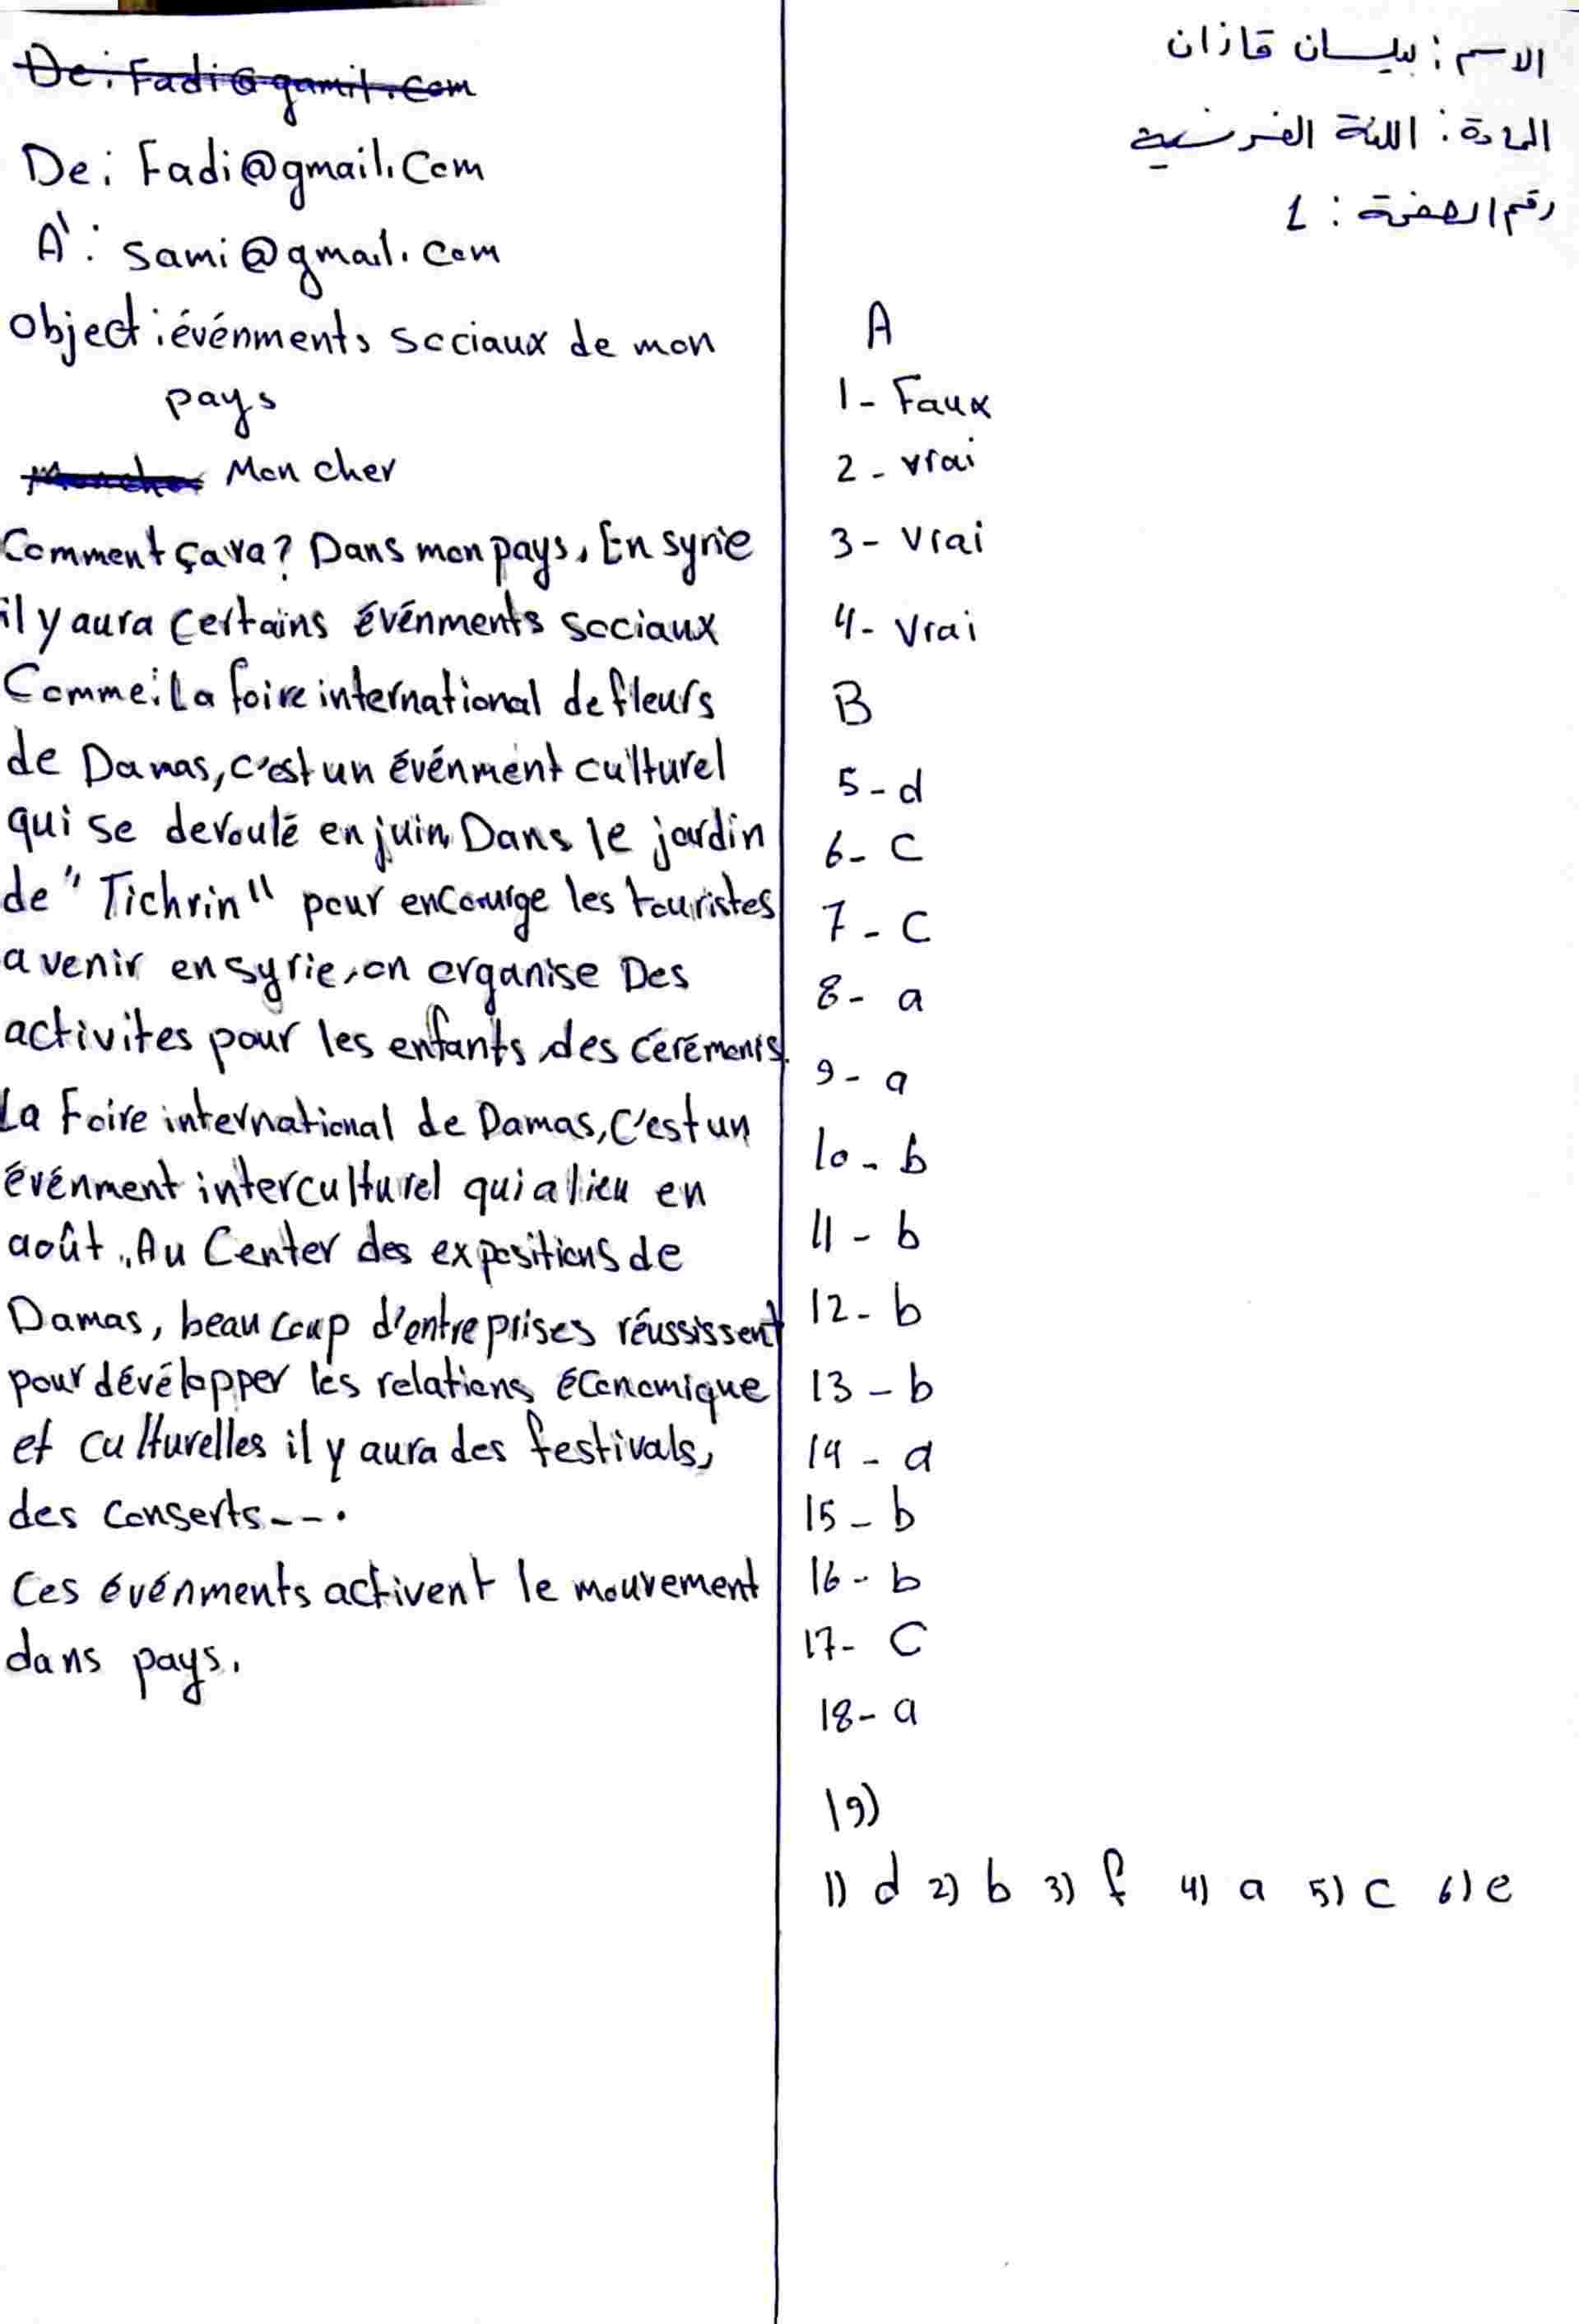 الاسم : بيلسان قازان
المادة : اللغة الفرنسية
رقم الصفحة : 1
A
1- Faux
2- vrai
3- Vrai
4- Vrai
B
5- d
6- C
7- C
8- a
9- a
10- b
11- b
12- b
13- b
14- a
15- b
16- b
17- C
18- a
19)
1) d 2) b 3) f 4) a 5) c 6) e
De: Fadi@gamil.com
De: Fadi@gmail.Com
À: Sami@gmail.com
Object: événments sociaux de mon
pays
Mon cher Mon cher
Comment ça va? Dans mon pays, En syrie
il y aura Certains événments sociaux
Comme: La foire international de fleurs
de Damas, c'est un événment culturel
qui se deroulé en juin, Dans le jardin
de "Tichrin" pour encourge les touristes
a venir en syrie, on organise Des
activites pour les enfants, des cérémonis.
La Foire international de Damas, C'est un
événment interculturel qui a lieu en
août, Au Center des expositions de
Damas, beaucoup d'entreprises réussissent
pour dévélopper les relations économique
et culturelles il y aura des festivals,
des Conserts---.
Ces événments activent le mouvement
dans pays.